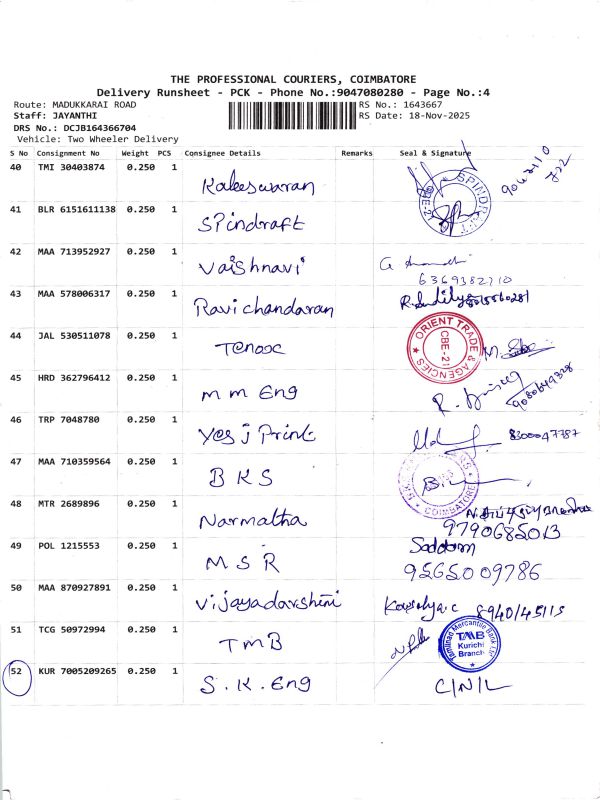 THE PROFESSIONAL COURIERS, COIMBATORE
Delivery Runsheet - PCK - Phone No.:9047080280 - Page No.:4
Route: MADUKKARAI ROAD RS No.: 1643667
Staff: JAYANTHI RS Date: 18-Nov-2025
DRS No.: DCJB164366704
Vehicle: Two Wheeler Delivery
S No Consignment No Weight PCS Consignee Details Remarks Seal & Signature
40 TMI 30403874 0.250 1 Kaleeswaran
41 BLR 6151611138 0.250 1 Spindraft
42 MAA 713952927 0.250 1 Vaishnavi
6369382710
43 MAA 578006317 0.250 1 Ravi chandaran
44 JAL 530511078 0.250 1 Tenosc ORIENT TRADE & AGENCIES CBE-21
45 HRD 362796412 0.250 1 m m Eng 9080649328
46 TRP 7048780 0.250 1 Yes i Print 8300047787
47 MAA 710359564 0.250 1 B K S COIMBATORE
48 MTR 2689896 0.250 1 Narmatha
9790685013
49 POL 1215553 0.250 1 M S R Saddam
9565009786
50 MAA 870927891 0.250 1 Vijayadarshini Kousalya.c 8940145115
51 TCG 50972994 0.250 1 TMB Tamilnad Mercantile Bank Ltd TMB Kurichi Branch
52 KUR 7005209265 0.250 1 S.K.Eng C/N/L